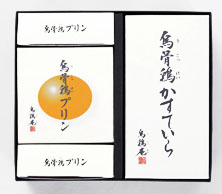 烏骨鶏プリン
烏骨鶏プリン
烏鶏庵
烏骨鶏プリン
烏骨鶏かすていら
烏鶏庵